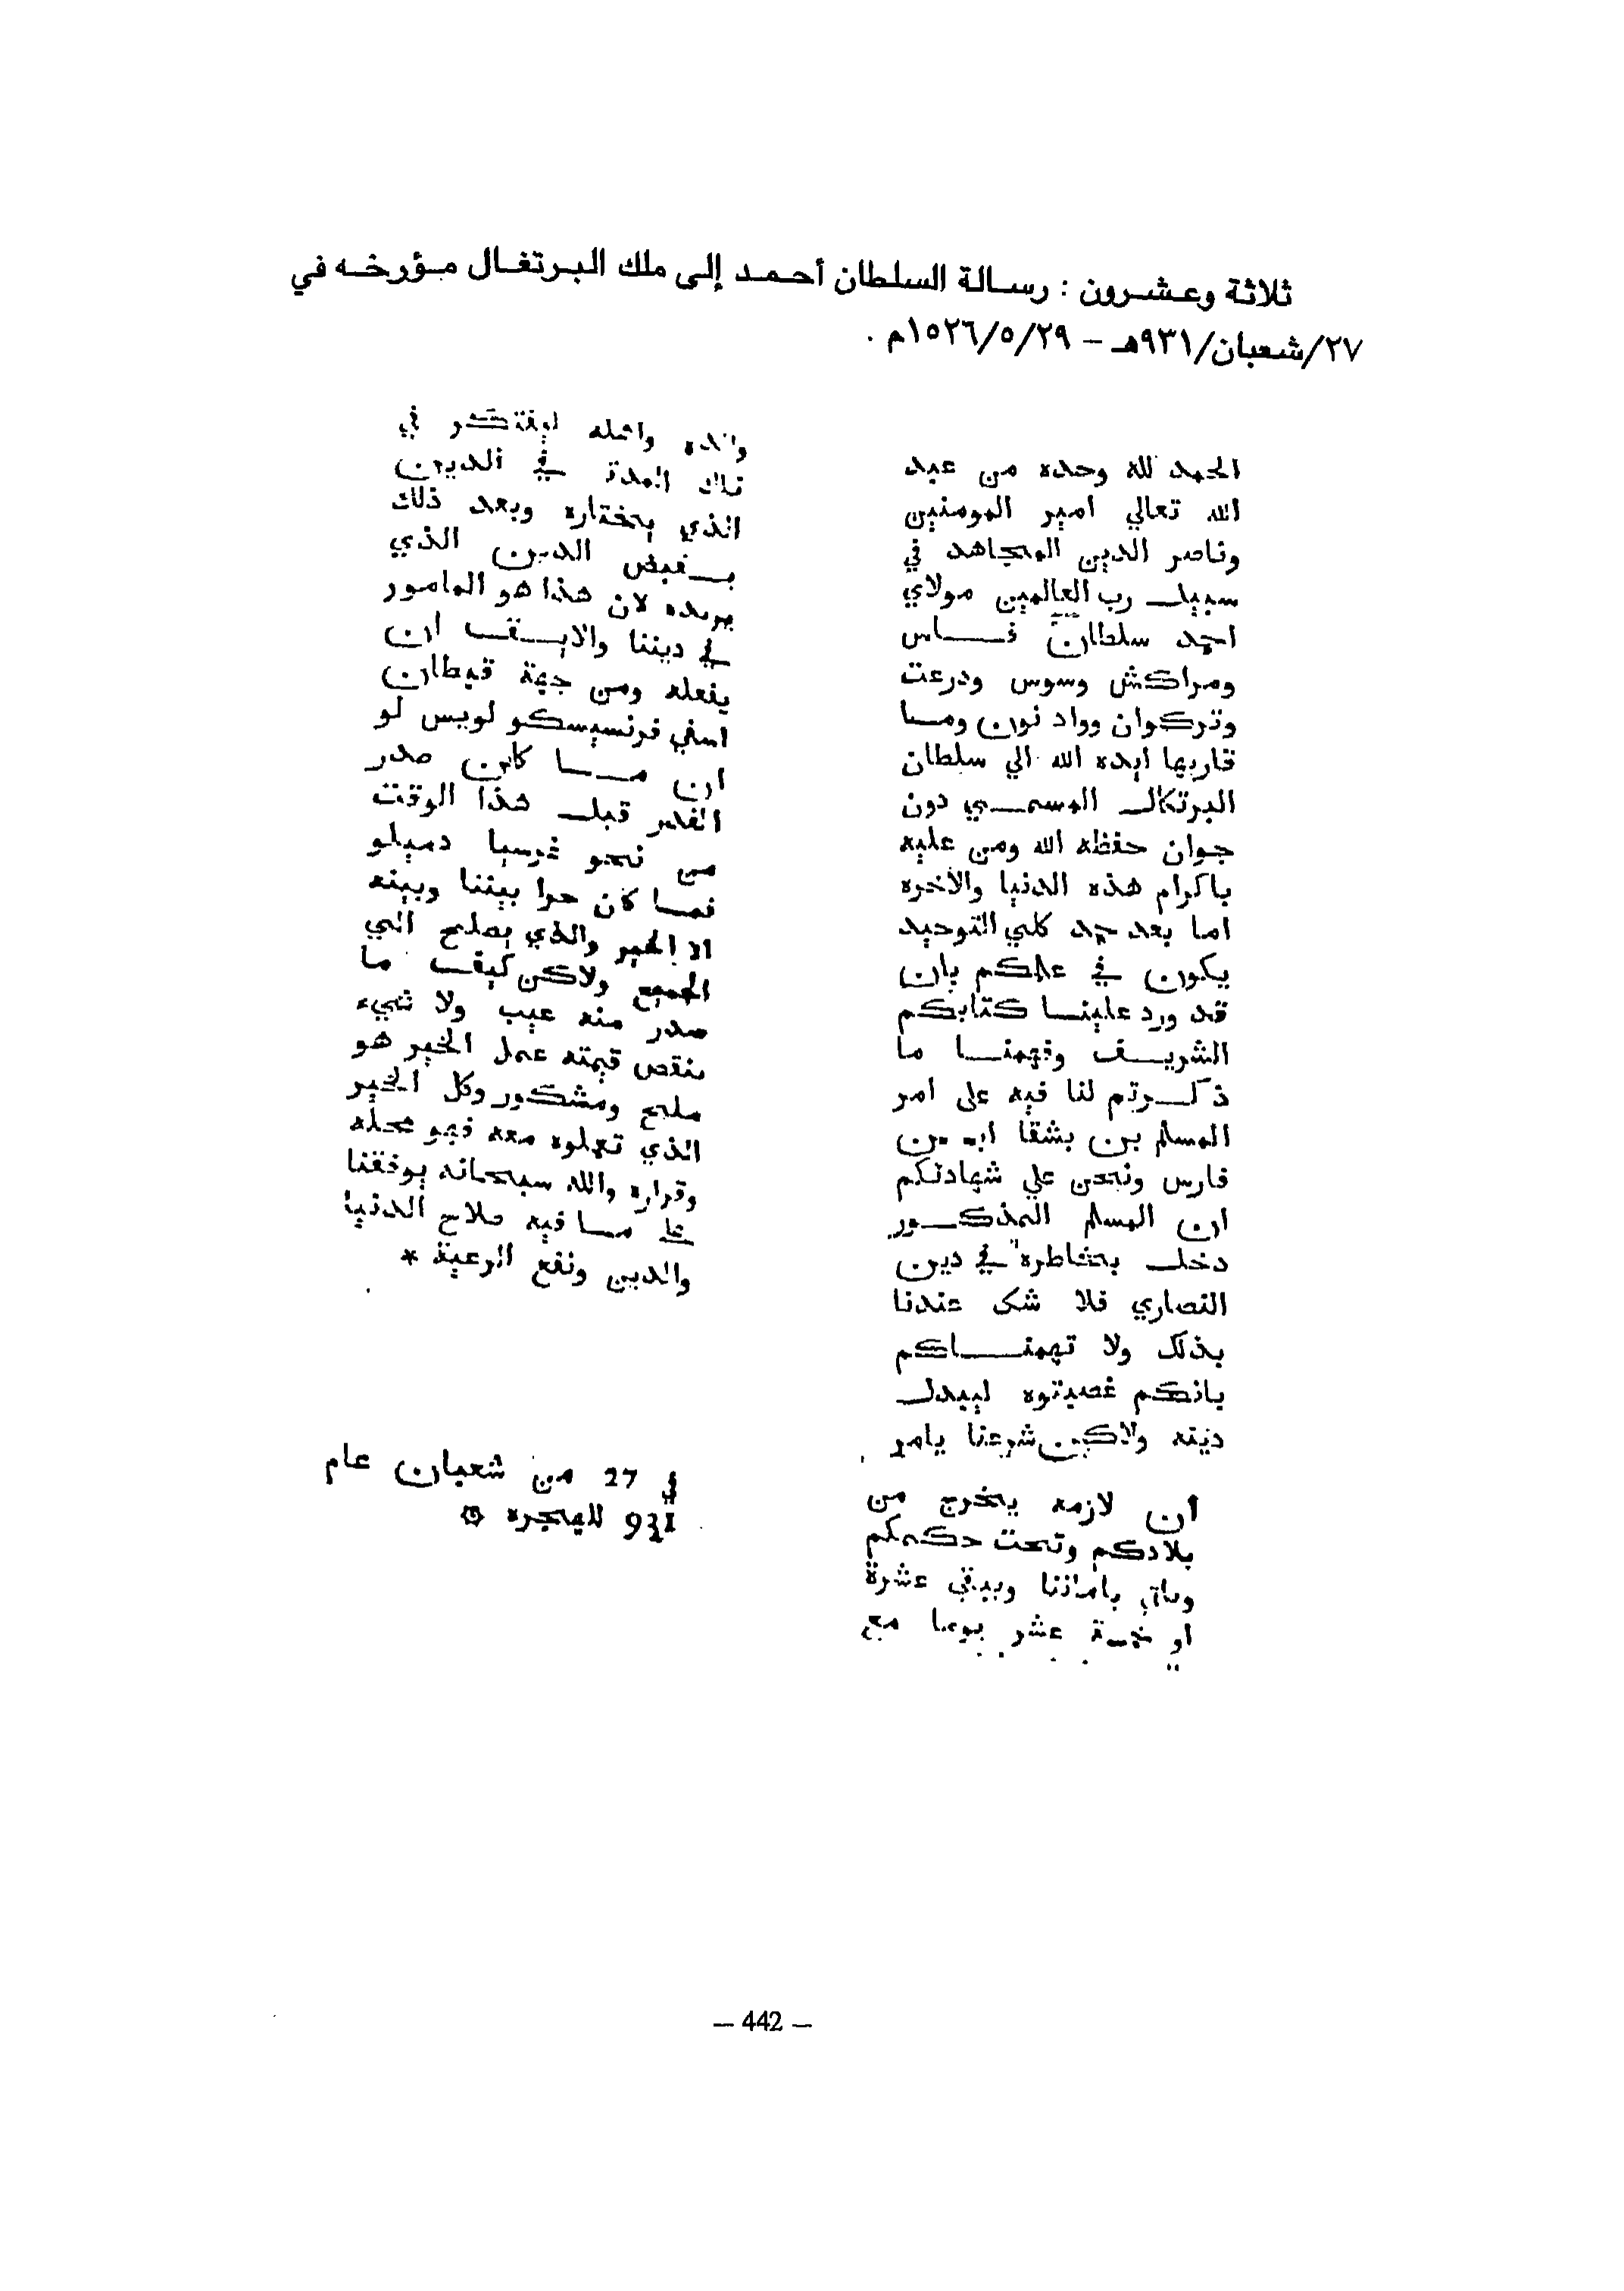 ثلاثة وعشرون : رسالة السلطان أحمد إلى ملك البرتغال مؤرخه في
٢٧/شعبان/٩٣١هـ – ١٥٢٦/٥/٢٩م .
الحمد لله وحده من عبد
الله تعالي امير المومنين
وناصر الدين المجاهد في
سبيل رب العالمين مولاي
احمد سلطان فاس
ومراكش وسوس ودرعت
وتركوان وواد نون وما
قاربها ايده الله الي سلطان
البرتكال المسمي دون
جوان حفظه الله ومن عليه
باكرام هذه الدنيا والاخره
اما بعد حمد كلي التوحيد
يكون في علمكم بان
قد ورد علينا كتابكم
الشريف وفهمنا ما
ذكرتم لنا فيه على امر
المسلم بن بشقا
فارس ونحن علي شهادتكم
ان المسلم المذكور
دخل بخاطره في دين
النصاري فلا شك عندنا
بذلك ولا تهمناكم
بانكم غصبتوه ليبدل
دينه ولاكن شرعنا يامر
ان لازمه يخرج من
بلادكم وتحت حكمكم
وياتي باماننا ويبقي عشرة
او خمسة عشر يوما مع
والده واهله ليفتكر في
تلك المدة في الدين
الذي يختاره وبعد ذلك
يقبض الدين الذي
يريده لان هذا هو المامور
في ديننا والايق ان
يفعله ومن جهة قبطان
اسفي فرنسيسكو لويس لو
ان ما كان صدر
الغدر قبل هذا الوقت
من نحو غرسيا دميلو
فما كان جرا بيننا وبينه
الا الخير والذي يصلح الي
الجميع ولاكن كيف ما
صدر منه عيب ولا شيء
ينقص قيمته عمل الخير هو
مليح ومشكور وكل الخير
الذي تعملوه معه فهو محله
وقراره والله سبحانه يوفقنا
على ما فيه صلاح الدنيا
والدين ونفع الرعية *
في 27 من شعبان عام
931 للهجره
— 442 —